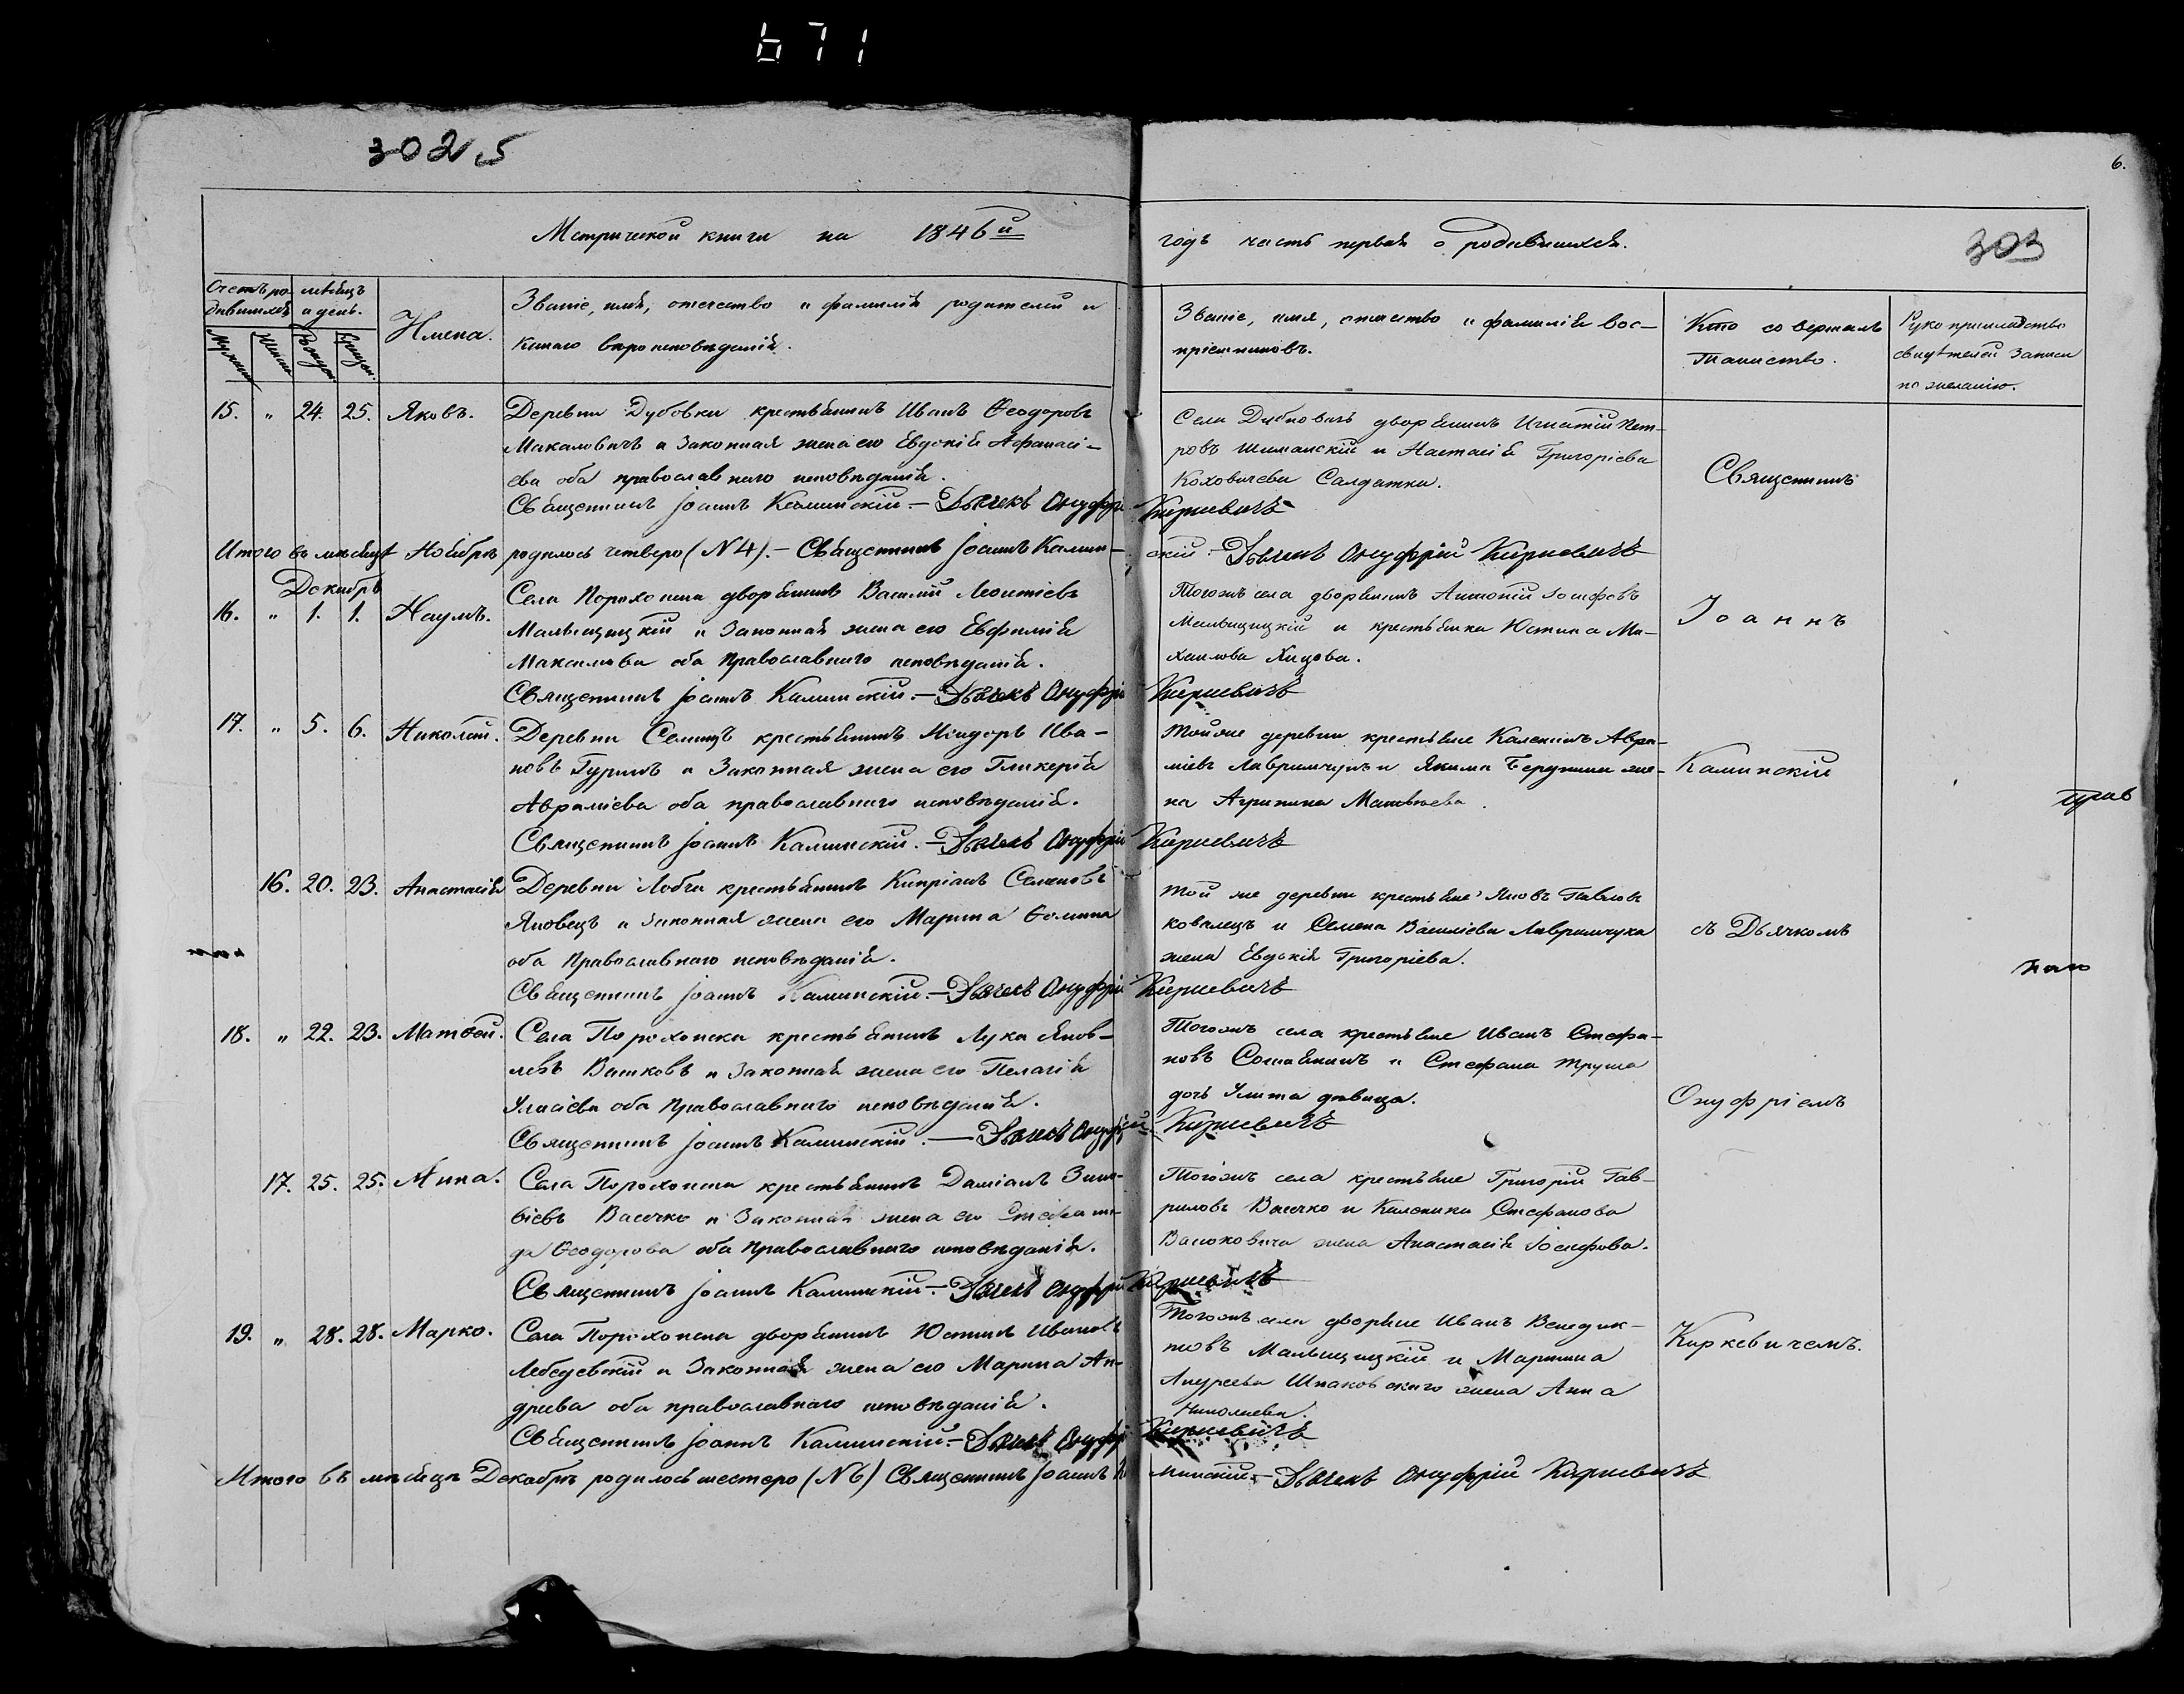 671
302 5
6.
Метрической книги на 1846й
годъ часть первая о родившихся.
303
Счетъ ро-
дившихся
мѣсяцъ
и день.
Мужеск
Женск
Рожден
Крещен.
Имена.
Званіе, имя, отечество и фамилія родителей и
какого вѣроисповѣданія.
Званіе, имя, отчество и фамилія вос-
пріемниковъ.
Кто совершалъ
таинство.
Рукоприкладство
свидѣтелей записи
по желанію.
15. " 24. 25. Яковъ.
Деревни Дубовки крестьянинъ Иванъ Ѳеодоровъ
Макаловичъ и Законная жена его Евдокія Афанасі-
ева оба православнаго исповѣданія.
Священникъ Іоаннъ Калинскій. - Дьячекъ Онуфрій Киркевичъ
Села Дубновичъ дворянинъ Игнатій Пет-
ровъ Шиманскій и Настасія Григоріева
Коховичева Салдатка.
Священникъ
Итого въ мѣсяцѣ Ноябрѣ родилось четверо (№ 4). - Священникъ Іоаннъ Калин-
скій - Дьячекъ Онуфрій Киркевичъ
Декабрь
16. " 1. 1. Наумъ.
Села Порохонска дворянинъ Василій Леонтіевъ
Мальщицкій и Законная жена его Евфимія
Максимова оба Православнаго исповѣданія.
Священникъ Іоаннъ Калинскій. - Дьячекъ Онуфрій Киркевичъ
Тогожъ села дворянинъ Антоній Іосифовъ
Мальщицкій и крестьянка Юстина Ми-
хаилова Хицова.
Іоаннъ
17. " 5. 6. Николай.
Деревни Семицъ крестьянинъ Исидоръ Ива-
новъ Гуринъ и Законная жена его Гликерія
Авраміева оба православнаго исповѣданія.
Священникъ Іоаннъ Калинскій. - Дьячекъ Онуфрій Киркевичъ
Тойже деревни крестьяне Калениикъ Авра-
міевъ Лавримчукъ и Якима же-
на Агрипина Матвѣева.
Калинскій
прав
16. 20. 23. Анастасія
Деревни Лобчи крестьянинъ Кипріанъ Семеновъ
Яковецъ и законная жена его Марина Ѳомина
оба Православнаго исповѣданія.
Священникъ Іоаннъ Калинскій. - Дьячекъ Онуфрій Киркевичъ
Той же деревни крестьяне Яковъ Павловъ
Ковалецъ и Семена Василіева Лавримчука
жена Евдокія Григоріева.
съ Дьячкомъ
18. " 22. 23. Матѳей.
Села Порохонска крестьянинъ Лука Яков-
левъ Вашковъ и Законная жена его Пелагія
оба Православнаго исповѣданія.
Священникъ Іоаннъ Калинскій. - Дьячекъ Онуфрій Киркевичъ
Тогожъ села крестьяне Иванъ Стефа-
новъ и Стефана Труша
дочь Улита дѣвица.
Онуфріемъ
17. 25. 25. Анна.
Села Порохонска крестьянинъ Даміанъ Зино-
віевъ Васечко и Законная жена его Стефани-
да Ѳеодорова оба Православнаго исповѣданія.
Священникъ Іоаннъ Калинскій. - Дьячекъ Онуфрій Киркевичъ
Тогожъ села крестьяне Григорій Гав-
риловъ Васечко и Каленика Стефанова
Васюковича жена Анастасія Іосифова.
19. " 28. 28. Марко.
Села Порохонска дворянинъ Юстинъ Ивановъ
Лебедевскій и Законная жена его Марина Ан-
дреева оба православнаго исповѣданія.
Священникъ Іоаннъ Калинскій. - Дьячекъ Онуфрій Киркевичъ
Тогожъ села дворяне Иванъ Венедик-
товъ Мальщицкій и Мартина
Андреева Шпаковскаго жена Анна
Николаева.
Киркевичемъ.
Итого въ мѣсяцѣ Декабрѣ родилось шестеро (№ 6) Священникъ Іоаннъ Ка-
линскій. - Дьячекъ Онуфрій Киркевичъ